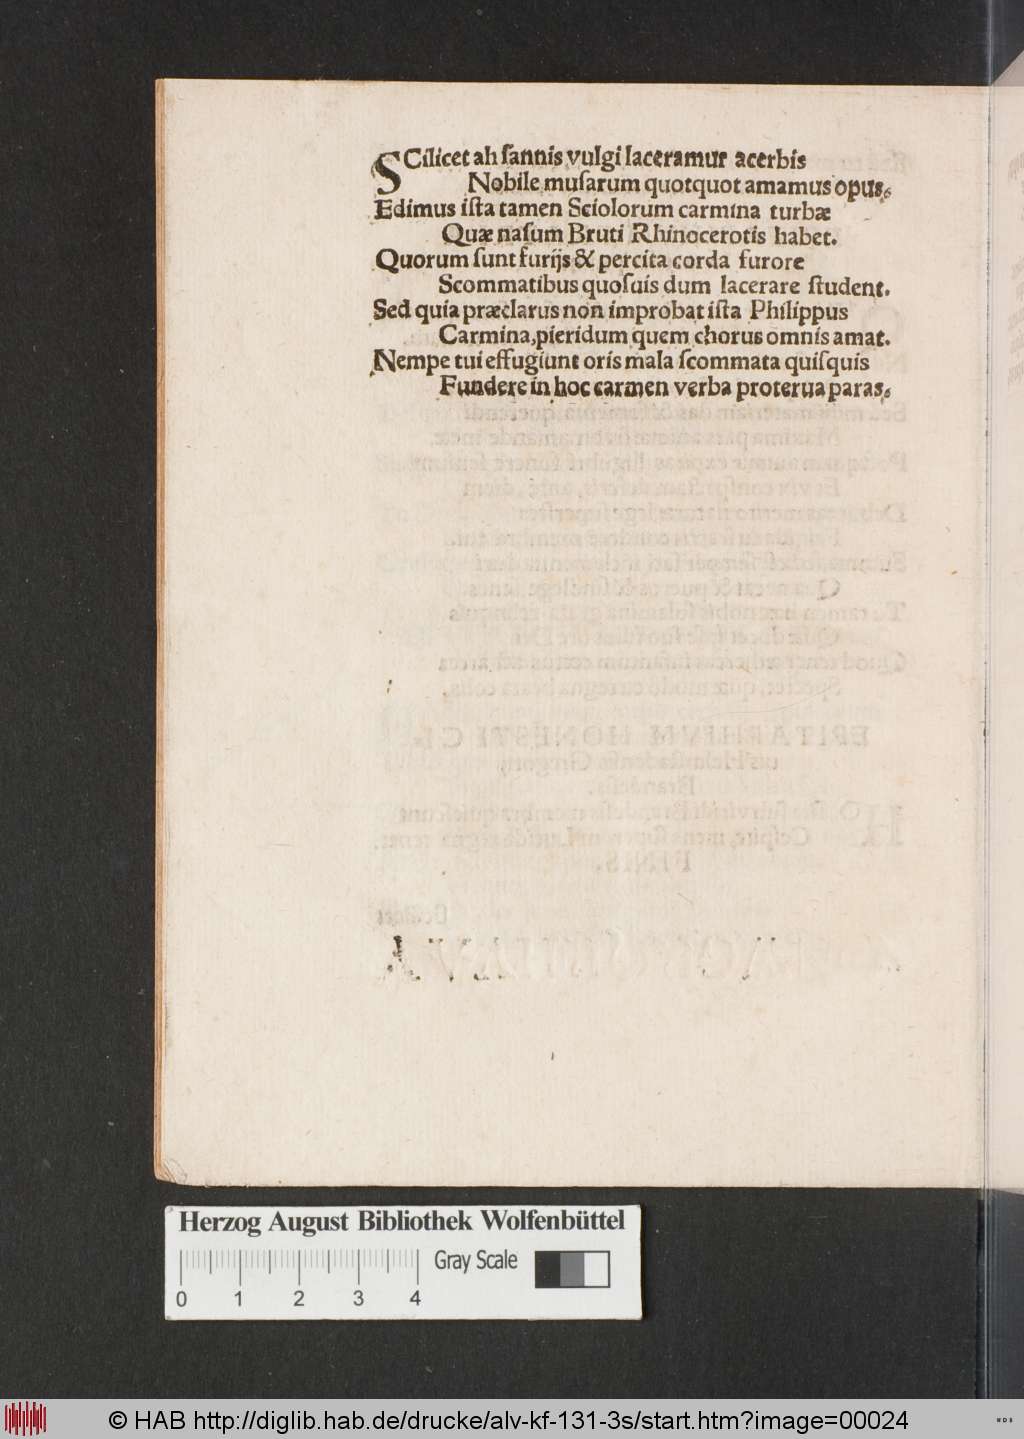 SCilicet ah ſannis vulgi laceramur acerbis
Nobile muſarum quotquot amamus opus.
Edimus iſta tamen Sciolorum carmina turbæ
Quæ naſum Bruti Rhinocerotis habet.
Quorum ſunt furijs & percita corda furore
Scommatibus quoſuis dum lacerare ſtudent.
Sed quia præclarus non improbat iſta Philippus
Carmina, pieridum quem chorus omnis amat.
Nempe tui effugiunt oris mala ſcommata quiſquis
Fundere in hoc carmen verba proterua paras.
Herzog August Bibliothek Wolfenbüttel
Gray Scale
0 1 2 3 4
© HAB http://diglib.hab.de/drucke/alv-kf-131-3s/start.htm?image=00024